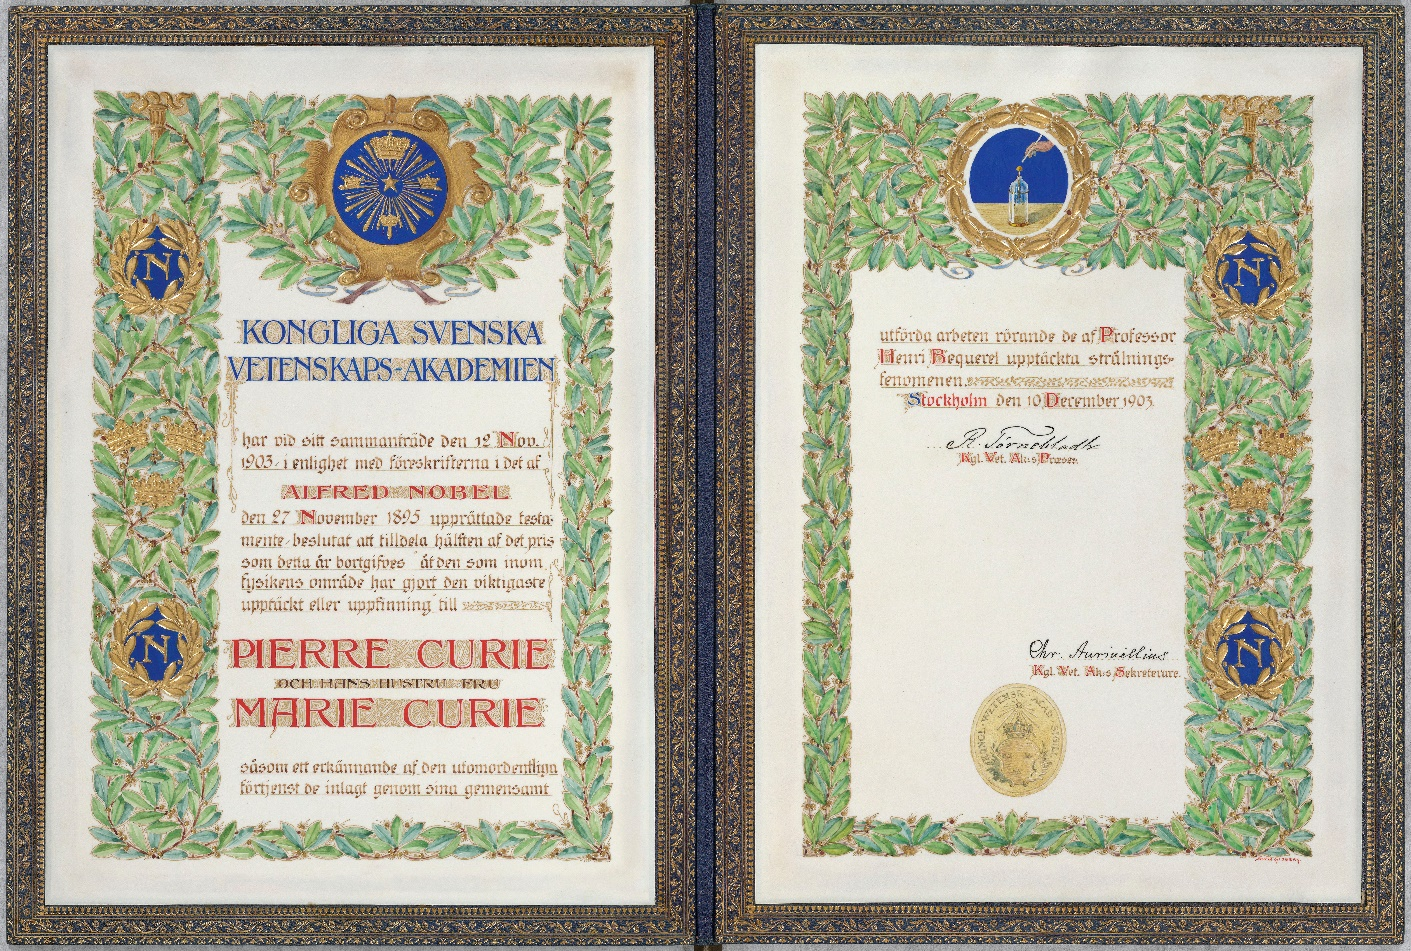 N
N
KONGLIGA SVENSKA
VETENSKAPS-AKADEMIEN
har vid sitt sammanträde den 12 Nov.
1903, i enlighet med föreskrifterna i det af
ALFRED NOBEL
den 27 November 1895 upprättade testa-
mente, beslutat att tilldela hälften af det pris
som detta år bortgifves "åt den som inom
fysikens område har gjort den viktigaste
upptäckt eller uppfinning" till
PIERRE CURIE
OCH HANS HUSTRU FRU
MARIE CURIE
såsom ett erkännande af den utomordentliga
förtjenst de inlagt genom sina gemensamt
utförda arbeten rörande de af Professor
Henri Bequerel upptäckta strålnings-
fenomenen.
Stockholm den 10 December 1903.
R. Törnebladh
Kgl. Vet. Ak:s Præses.
Chr. Aurivillius
Kgl. Vet. Ak:s Sekreterare.
N
N